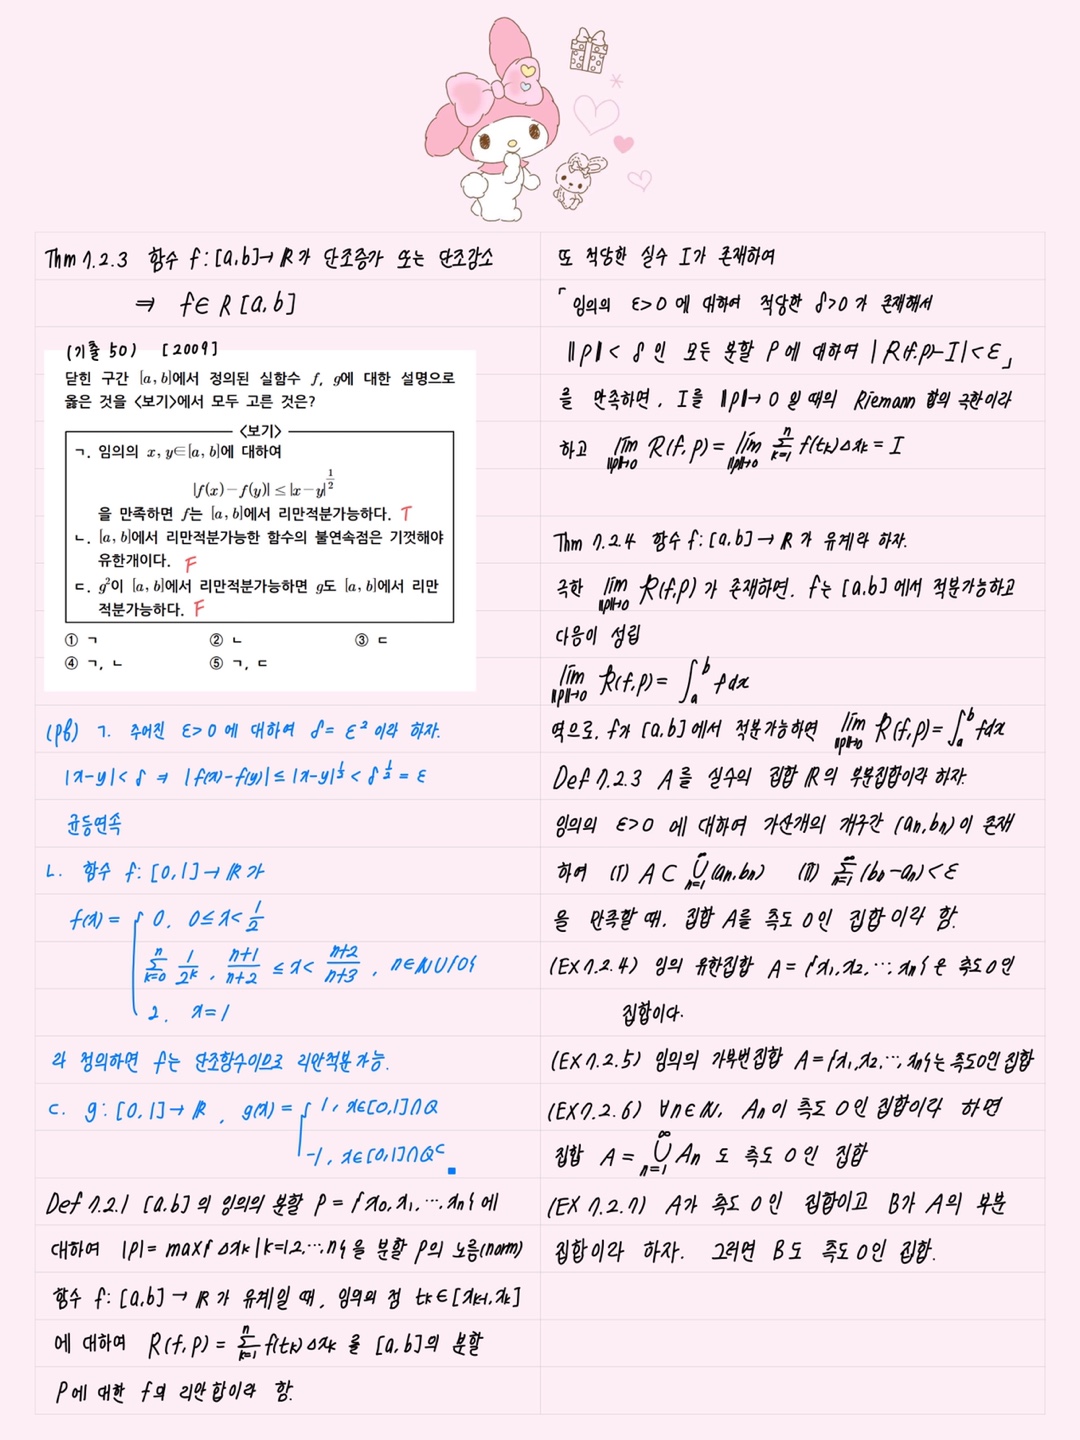 Thm 7.2.3 함수 f:[a,b]→ℝ가 단조증가 또는 단조감소
⇒ f∈R[a,b]
(기출 50) [2009]
닫힌 구간 [a, b]에서 정의된 실함수 f, g에 대한 설명으로
옳은 것을 <보기>에서 모두 고른 것은?
<보기>
ㄱ. 임의의 x, y∈[a, b]에 대하여
|f(x)−f(y)| ≤ |x−y|^{1/2}
을 만족하면 f는 [a, b]에서 리만적분가능하다. T
ㄴ. [a, b]에서 리만적분가능한 함수의 불연속점은 기껏해야
유한개이다. F
ㄷ. g²이 [a, b]에서 리만적분가능하면 g도 [a, b]에서 리만
적분가능하다. F
① ㄱ ② ㄴ ③ ㄷ
④ ㄱ, ㄴ ⑤ ㄱ, ㄷ
(pf) ㄱ. 주어진 ε>0에 대하여 δ=ε²이라 하자.
|x-y|<δ ⇒ |f(x)-f(y)|≤|x-y|^{1/2}<δ^{1/2}=ε
균등연속
ㄴ. 함수 f:[0,1]→ℝ가
f(x)= { 0, 0≤x<1/2
∑_{k=0}^{n} 1/2^k, (n+1)/(n+2) ≤x< (n+2)/(n+3), n∈ℕ∪{0}
2, x=1
라 정의하면 f는 단조함수이므로 리만적분가능.
ㄷ. g:[0,1]→ℝ, g(x)= { 1, x∈[0,1]∩Q
-1, x∈[0,1]∩Q^c ■
Def 7.2.1 [a,b]의 임의의 분할 P={x₀,x₁,⋯,xₙ}에
대하여 |P|=max{Δxₖ|k=1,2,⋯,n}을 분할 P의 노름(norm)
함수 f:[a,b]→ℝ가 유계일 때, 임의의 점 tₖ∈[xₖ₋₁,xₖ]
에 대하여 R(f,P)=∑_{k=1}^{n} f(tₖ)Δxₖ를 [a,b]의 분할
P에 대한 f의 리만합이라 함.
또 적당한 실수 I가 존재하여
「임의의 ε>0에 대하여 적당한 δ>0가 존재해서
‖P‖<δ인 모든 분할 P에 대하여 |R(f,P)-I|<ε」
을 만족하면, I를 ‖P‖→0일 때의 Riemann 합의 극한이라
하고 lim_{‖P‖→0} R(f,P)=lim_{‖P‖→0} ∑_{k=1}^{n} f(tₖ)Δxₖ=I
Thm 7.2.4 함수 f:[a,b]→ℝ가 유계라 하자.
극한 lim_{‖P‖→0} R(f,P)가 존재하면, f는 [a,b]에서 적분가능하고
다음이 성립
lim_{‖P‖→0} R(f,P)=∫_a^b fdx
역으로, f가 [a,b]에서 적분가능하면 lim_{‖P‖→0} R(f,P)=∫_a^b fdx
Def 7.2.3 A를 실수의 집합 ℝ의 부분집합이라 하자.
임의의 ε>0에 대하여 가산개의 개구간 (aₙ,bₙ)이 존재
하여 (i) A⊂⋃_{n=1}^{∞}(aₙ,bₙ) (ii) ∑_{n=1}^{∞}(bₙ-aₙ)<ε
을 만족할 때, 집합 A를 측도 0인 집합이라 함.
(EX 7.2.4) 임의 유한집합 A={x₁,x₂,⋯,xₙ}은 측도 0인
집합이다.
(EX 7.2.5) 임의의 가부번집합 A={x₁,x₂,⋯,xₙ}는 측도0인 집합
(EX 7.2.6) ∀n∈ℕ, Aₙ이 측도 0인 집합이라 하면
집합 A=⋃_{n=1}^{∞}Aₙ도 측도 0인 집합
(EX 7.2.7) A가 측도 0인 집합이고 B가 A의 부분
집합이라 하자. 그러면 B도 측도0인 집합.